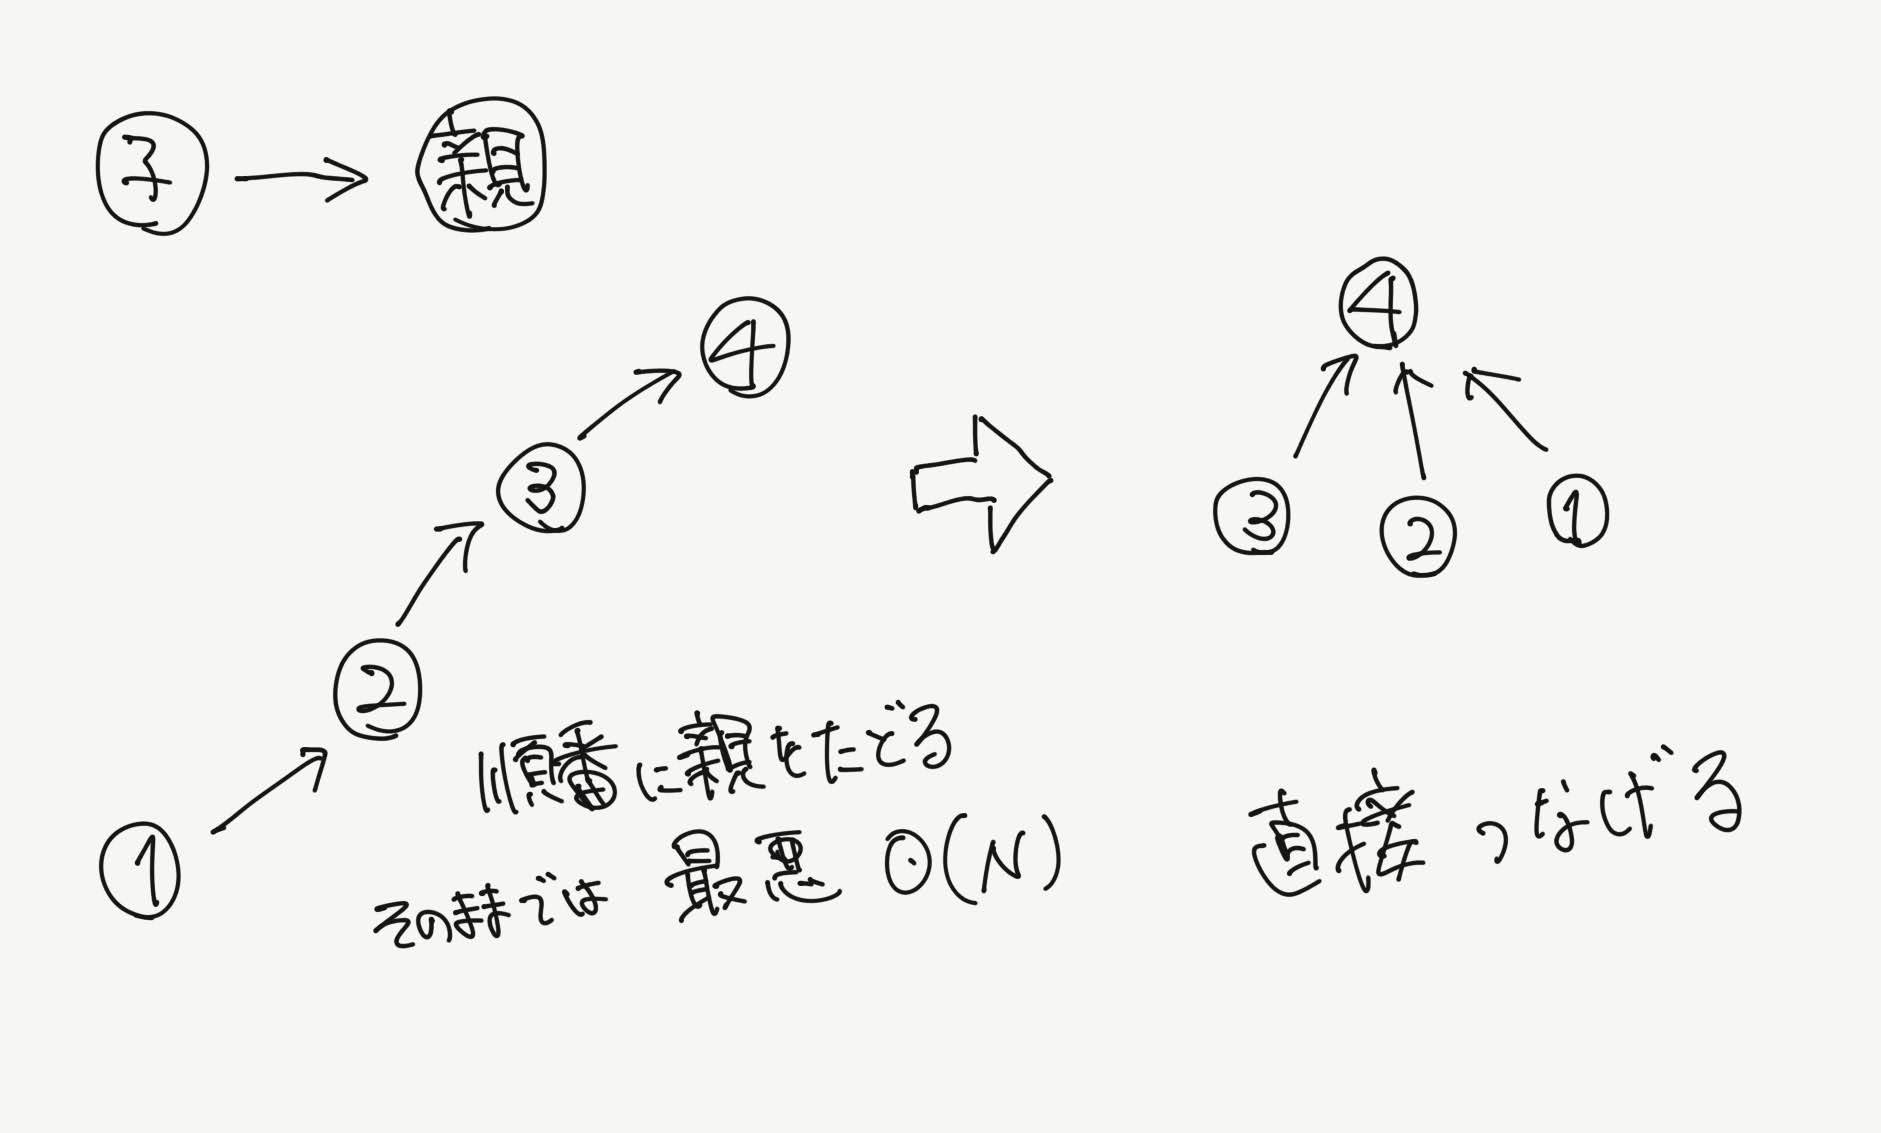 子 → 親
4
3
2
1
順番に親をたどる
そのままでは 最悪 O(N)
4
3 2 1
直接つなげる